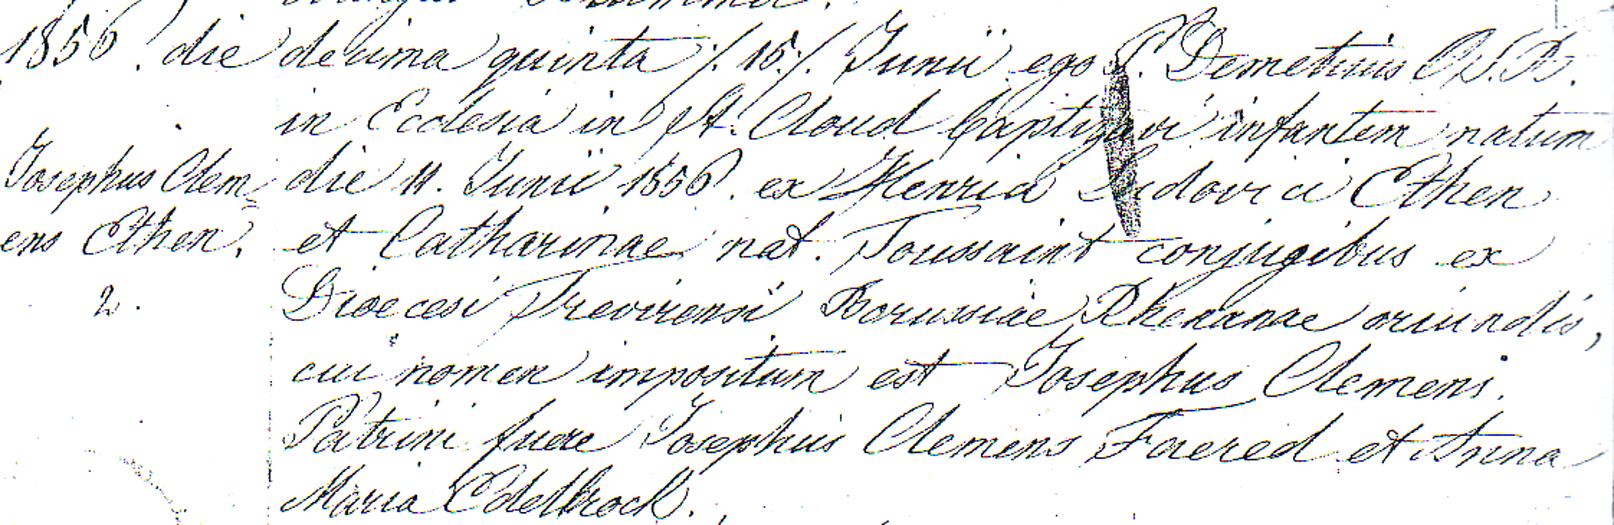 1856. die decima quinta /. 15./. Junii ego P. Demetrius
in Ecclesia in St. Cloud baptizavi infantem natum
Josephus Clem= die 11. Junii 1856. ex Henrici Ludovici Ethen
ens Ethen. et Catharinae nat. Toussaint conjugibus ex
2. Dioecesi Trevirensi Borussiae Rhenanae oriundis,
cui nomen impositum est Josephus Clemens.
Patrini fuere Josephus Clemens et Anna
Maria Edelbrock.